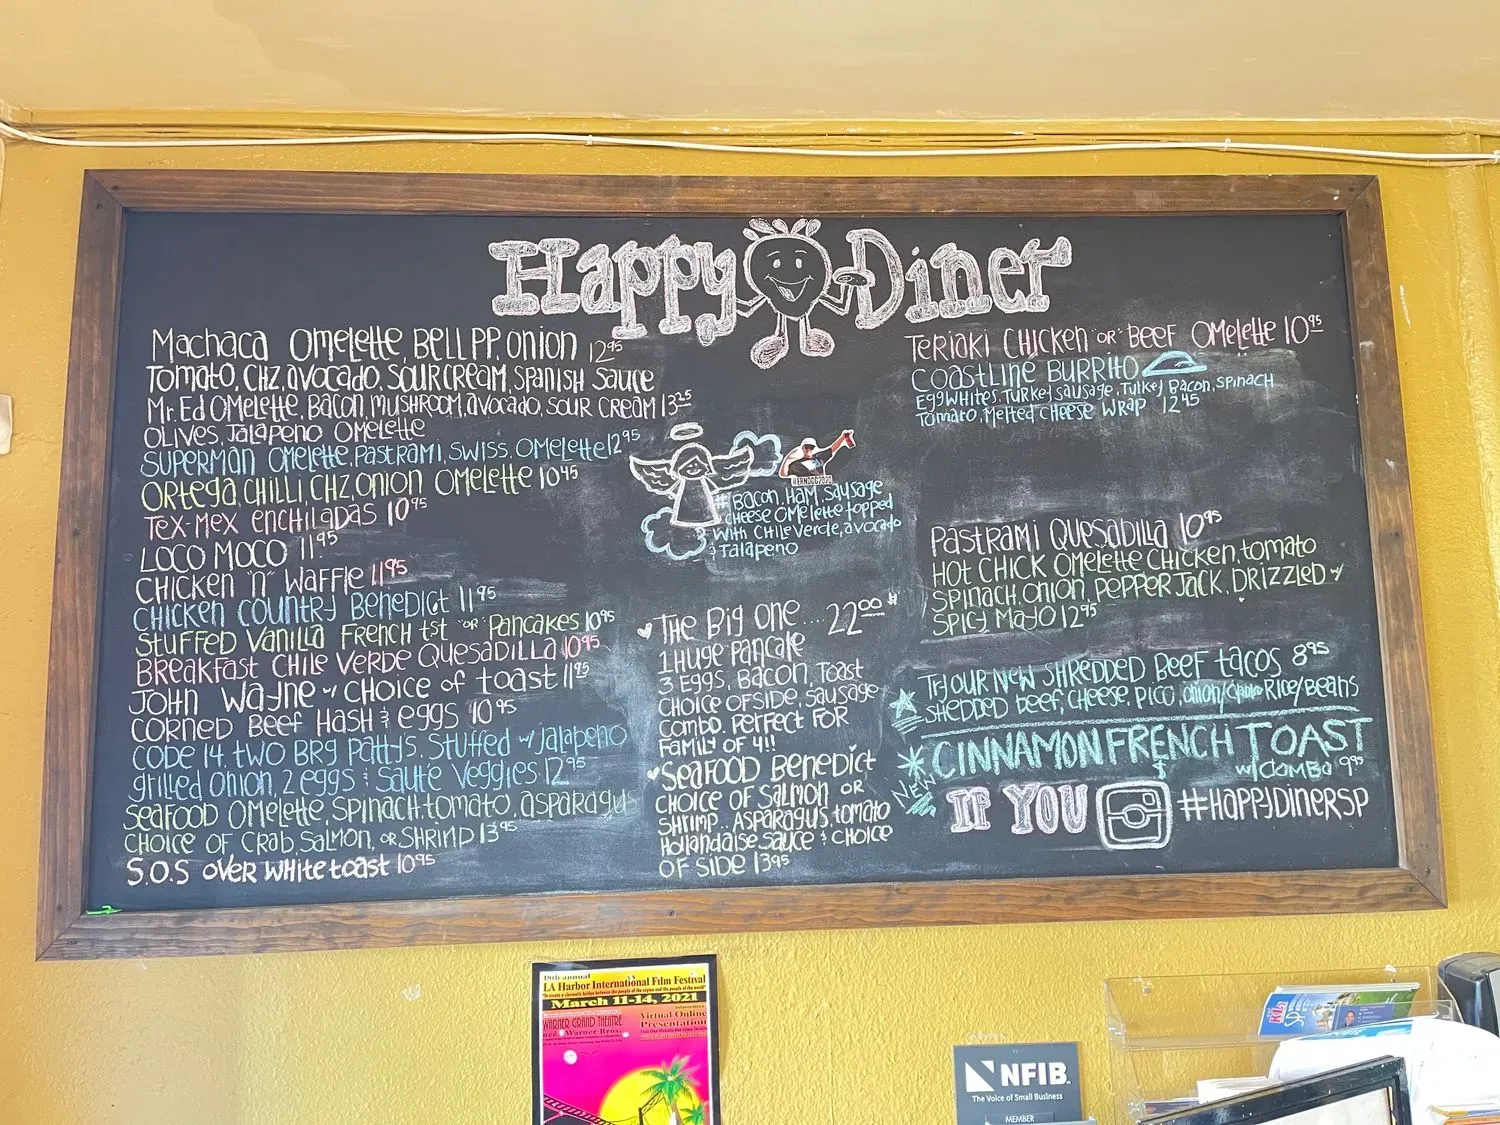 Happy Diner
Machaca Omelette, Bell PP, Onion 12⁹⁵
Tomato, CHZ, avocado, sour cream, Spanish sauce
Mr. Ed Omelette, Bacon, mushroom, avocado, sour cream 13²⁵
Olives, Jalapeno Omelette
Superman Omelette, Pastrami, Swiss, Omelette 12⁹⁵
Ortega, Chilli, CHZ, onion Omelette 10⁴⁵
Tex-Mex enchiladas 10⁹⁵
Loco Moco 11⁹⁵
Chicken "n" Waffle 11⁹⁵
Chicken Country Benedict 11⁹⁵
Stuffed Vanilla French tst "or" Pancakes 10⁹⁵
Breakfast Chile Verde Quesadilla 10⁹⁵
John Wayne w/ choice of toast 11⁹⁵
Corned Beef Hash & eggs 10⁹⁵
Code 14, two BRG Pattys, Stuffed w/ jalapeno
grilled onion, 2 eggs & saute veggies 12⁹⁵
Seafood Omelette, spinach, tomato, asparagus
choice of crab, salmon, or shrimp 13⁹⁵
S.O.S over white toast 10⁹⁵
@ERNDOG2020
# Bacon, Ham, Sausage
cheese Omelette topped
with Chile Verde, avocado
& Jalapeno
The Big One .... 22⁰⁰
1 Huge Pancake
3 Eggs, Bacon, Toast
choice of side, sausage
combo. Perfect for
Family of 4!!
Seafood Benedict
choice of salmon or
shrimp.. Asparagus, tomato
Hollandaise sauce & choice
of side 13⁹⁵
Teriaki Chicken "or" Beef Omelette 10⁹⁵
Coastline Burrito
Egg whites, Turkey sausage, Turkey Bacon, spinach
Tomato, Melted cheese wrap 12⁴⁵
Pastrami Quesadilla 10⁹⁵
Hot Chick Omelette Chicken, tomato
spinach, onion, pepper jack, drizzled w/
spicy mayo 12⁹⁵
Try our new shredded beef tacos 8⁹⁵
shedded beef, cheese, pico, onion/ Rice/Beans
Cinnamon French Toast
w/ combo 9⁹⁵
NEW
IF YOU #HappyDinerSP
18th annual
LA Harbor International Film Festival
March 11-14, 2021
Warner Grand Theatre
nee Warner Bros.
Virtual Online
Presentation
NFIB
The Voice of Small Business
MEMBER